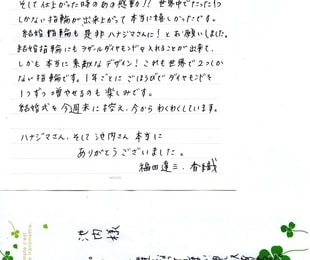 そして仕上がった時のあの感動!! 世界中でたった1つ
しかない指輪が出来上がって本当に嬉しかったです。
結婚指輪も是非ハナジマさんに!とお願いしました。
結婚指輪にもラザールダイヤモンドを入れることが出来て、
しかも本当に素敵なデザイン! これも世界で2つしか
ない指輪です。1年ごとにごほうびでダイヤモンドを
1つずつ増やせるのも楽しみです。
結婚式を今週末に控え、今からわくわくしています。
ハナジマさん、そして池内さん本当に
ありがとうございました。
池内様